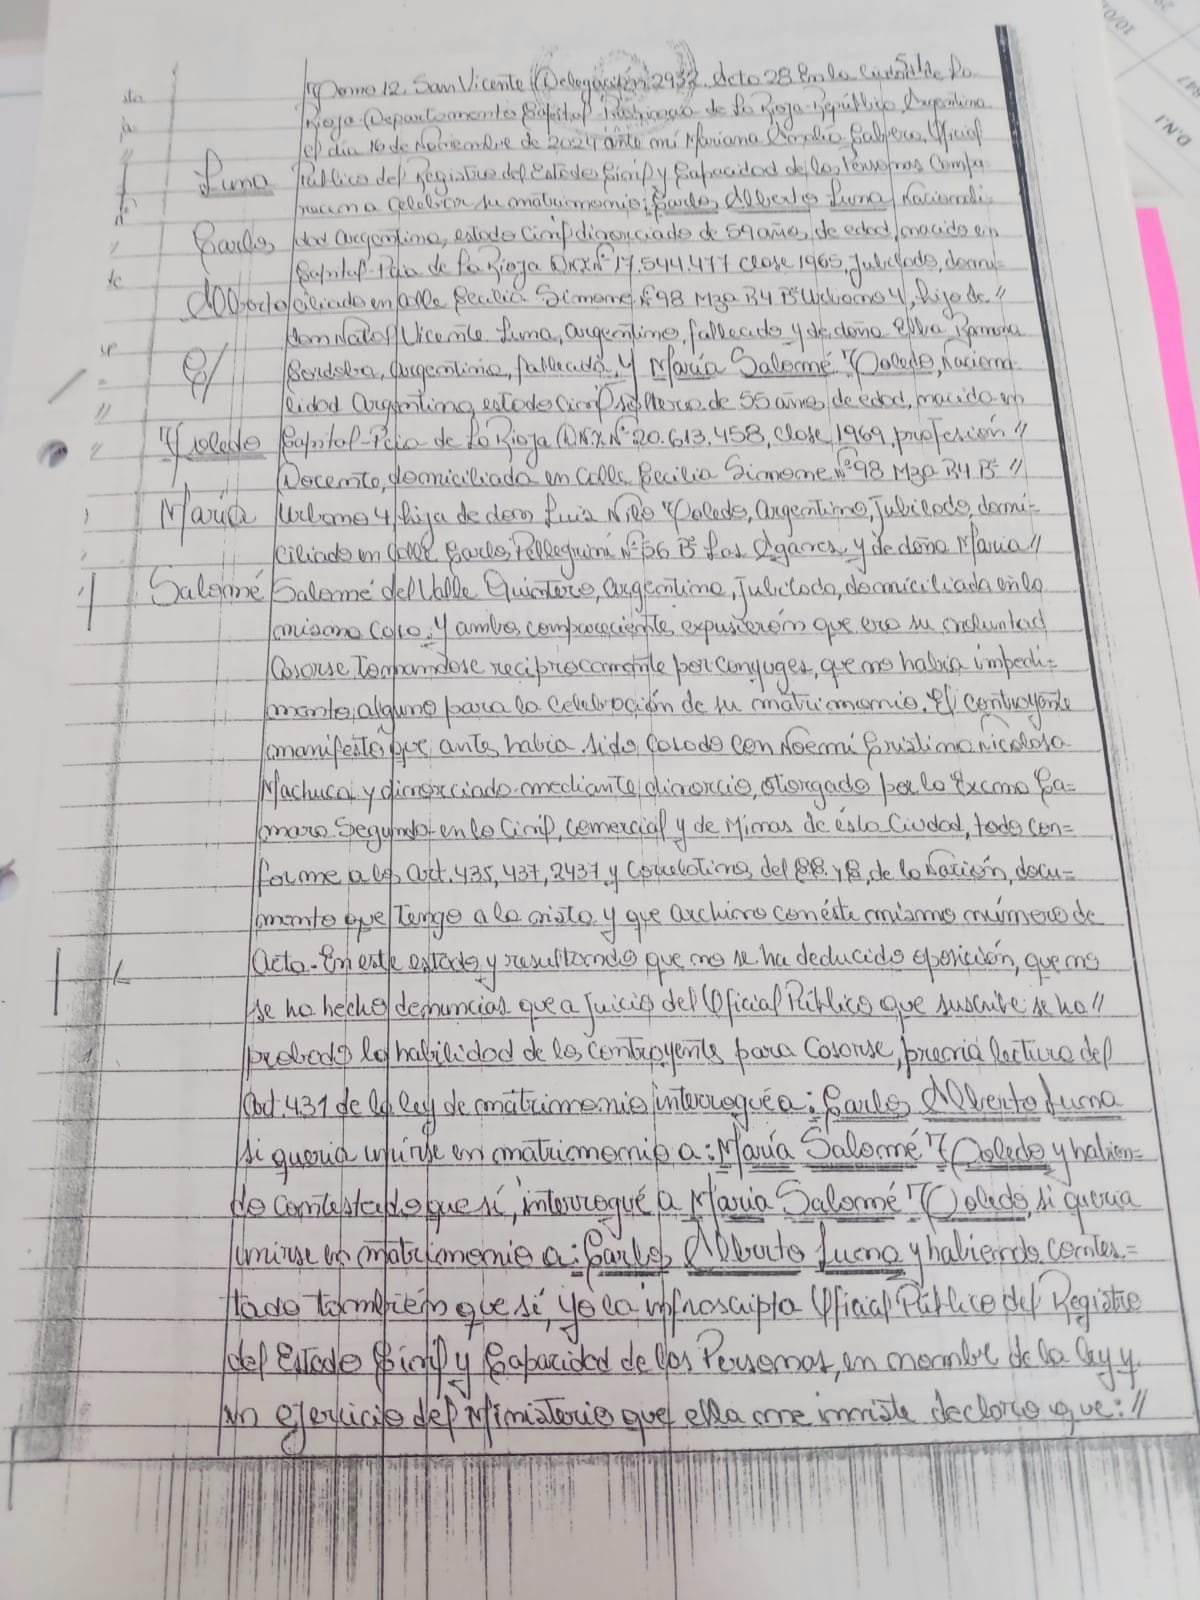 Tomo 12. San Vicente (Delegación 2937. Acto 28 En la Ciudad de La
Rioja-Departamento Capital-Provincia de La Rioja-República Argentina
el día 16 de Noviembre de 2024 ante mí Mariana Cabrera, Oficial
Público del Registro del Estado Civil y Capacidad de las Personas Compa
recen a Celebrar su matrimonio: Carlos Alberto Luna Nacionali-
dad Argentina, estado Civil divorciado de 59 años, de edad, nacido en
Capital-Pcia de La Rioja D.N.I. Nº 17.544.477 Clase 1965, Jubilado, domi-
ciliado en Calle Cecilia Simone Nº 98 Mza 84 Bº Urbano 4, hijo de //
don Vicente Luna, argentino, fallecido y de doña Elba Ramona
Cordoba, Argentina, fallecida, y María Salomé Toledo, Naciona-
lidad Argentina, estado Civil soltera de 55 años, de edad, nacida en
Capital-Pcia de La Rioja D.N.I. Nº 20.613.458, Clase 1969, profesión //
Docente, domiciliada en Calle Cecilia Simone Nº 98 Mza 84 Bº //
Urbano 4, hija de don Luis Toledo, Argentino, Jubilado, domi-
ciliado en Calle Carlos Pellegrini Nº 56 Bº Los y de doña Maria //
Salomé del Valle Quintero, argentina, Jubilada, domiciliada en la
misma casa, y ambos comparecientes, expusieron que era su voluntad
Casarse tomandose reciprocamente por Conyuges, que no habia impedi=
mento alguno para la Celebración de su matrimonio. El Contrayente
manifestó que antes habia sido Casado con Noemí Cristina Nicolasa
Machuca y divorciado mediante divorcio, otorgado por la Excma Ca=
mara Segunda en lo Civil, Comercial y de Minas de ésta Ciudad, todo con=
forme a los art. 435, 437, 2437 y Correlativos, del C.C. y C, de la Nación, docu=
mento que tengo a la vista y que archivo con éste mismo número de
Acta-En este estado y resultando que no se ha deducido oposición, que no
se ha hecho denuncias que a Juicio del Oficial Público que suscribe se ha //
probado la habilidad de los Contrayentes para Casarse, previa lectura del
Art. 431 de la ley de matrimonio interrogué a: Carlos Alberto Luna
si queria unirse en matrimonio a: María Salomé Toledo y habien=
do Contestado que sí, interrogué a Maria Salomé Toledo, si queria
unirse en matrimonio a: Carlos Alberto Luna y habiendo contes=
tado también que sí, yo la infrascripta Oficial Público del Registro
del Estado Civil y Capacidad de las Personas, en nombre de la ley y
en ejercicio del Ministerio que ella me inviste declaro que: //
Luna
Carlos
Alberto
C/
Toledo
María
Salomé
D.N.I